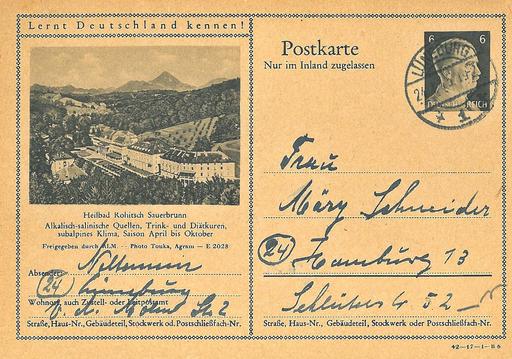 Lernt Deutschland kennen!
Heilbad Rohitsch Sauerbrunn
Alkalisch-salinische Quellen, Trink- und Diätkuren,
subalpines Klima, Saison April bis Oktober
Freigegeben durch RLM. -- Photo Touka, Agram — E 2028
Absender:
(24) Lüneburg
Wohnort, auch Zustell- oder Leitpostamt
Straße, Haus-Nr., Gebäudeteil, Stockwerk od. Postschließfach-Nr.
Postkarte
Nur im Inland zugelassen
6 6
LÜNEBURG
REICH
1
Frau
Märy Schneider
(24) Hamburg 13
52
Straße, Haus-Nr., Gebäudeteil, Stockwerk oder Postschließfach-Nr.
42—17—1—B6